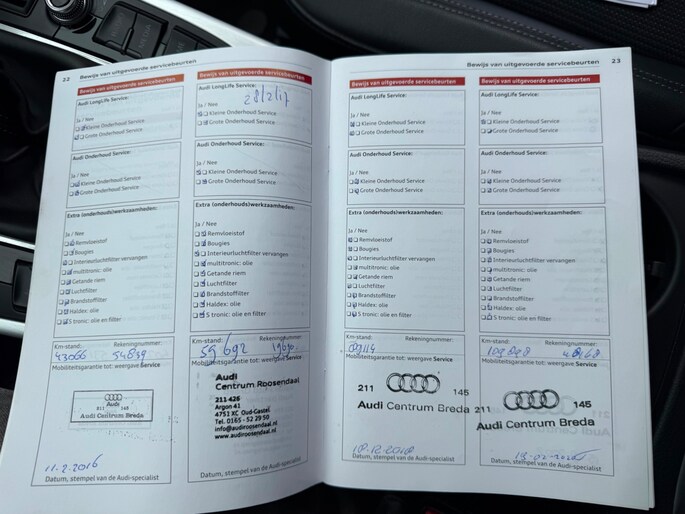 22 Bewijs van uitgevoerde servicebeurten
Bewijs van uitgevoerde servicebeurten
Audi LongLife Service:
Ja / Nee
Kleine Onderhoud Service
Grote Onderhoud Service
Audi Onderhoud Service:
Ja / Nee
Kleine Onderhoud Service
Grote Onderhoud Service
Extra (onderhouds)werkzaamheden:
Ja / Nee
Remvloeistof
Bougies
Interieurluchtfilter vervangen
multitronic: olie
Getande riem
Luchtfilter
Brandstoffilter
Haldex: olie
S tronic: olie en filter
Km-stand: Rekeningnummer:
43066 54859
Mobiliteitsgarantie tot: weergave Service
Audi
211 145
Audi Centrum Breda
11.2.2016
Datum, stempel van de Audi-specialist
Bewijs van uitgevoerde servicebeurten
Audi LongLife Service:
28/2/17
Ja / Nee
Kleine Onderhoud Service
Grote Onderhoud Service
Audi Onderhoud Service:
Ja / Nee
Kleine Onderhoud Service
Grote Onderhoud Service
Extra (onderhouds)werkzaamheden:
Ja / Nee
Remvloeistof
Bougies
Interieurluchtfilter vervangen
multitronic: olie
Getande riem
Luchtfilter
Brandstoffilter
Haldex: olie
S tronic: olie en filter
Km-stand: Rekeningnummer:
59692
Mobiliteitsgarantie tot: weergave Service
Audi
Centrum Roosendaal
211 426
Argon 41
4751 XC Oud-Gastel
Tel. 0165 - 52 29 50
info@audiroosendaal.nl
www.audiroosendaal.nl
Datum, stempel van de Audi-specialist
Bewijs van uitgevoerde servicebeurten 23
Bewijs van uitgevoerde servicebeurten
Audi LongLife Service:
Ja / Nee
Kleine Onderhoud Service
Grote Onderhoud Service
Audi Onderhoud Service:
Ja / Nee
Kleine Onderhoud Service
Grote Onderhoud Service
Extra (onderhouds)werkzaamheden:
Ja / Nee
Remvloeistof
Bougies
Interieurluchtfilter vervangen
multitronic: olie
Getande riem
Luchtfilter
Brandstoffilter
Haldex: olie
S tronic: olie en filter
Km-stand: Rekeningnummer:
89114
Mobiliteitsgarantie tot: weergave Service
211 145
Audi Centrum Breda
18.12.2018
Datum, stempel van de Audi-specialist
Bewijs van uitgevoerde servicebeurten
Audi LongLife Service:
Ja / Nee
Kleine Onderhoud Service
Grote Onderhoud Service
Audi Onderhoud Service:
Ja / Nee
Kleine Onderhoud Service
Grote Onderhoud Service
Extra (onderhouds)werkzaamheden:
Ja / Nee
Remvloeistof
Bougies
Interieurluchtfilter vervangen
multitronic: olie
Getande riem
Luchtfilter
Brandstoffilter
Haldex: olie
S tronic: olie en filter
Km-stand: Rekeningnummer:
Mobiliteitsgarantie tot: weergave Service
211 145
Audi Centrum Breda
Datum, stempel van de Audi-specialist